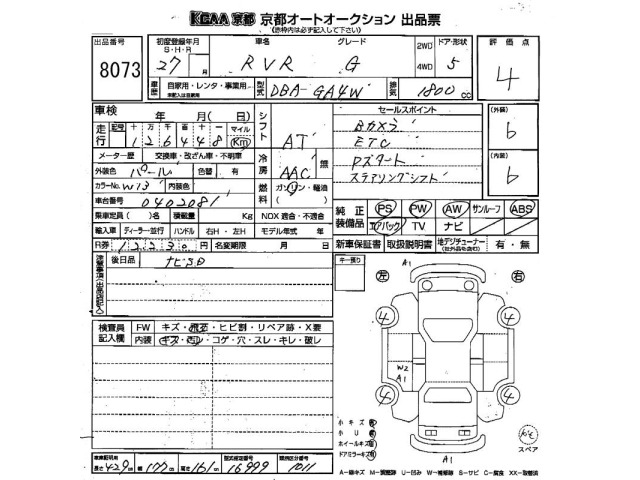 KCAA 京都 京都オートオークション 出品票
(赤枠内は必ず記入して下さい)
出品番号
8073
初度登録年月
S・H・R
27 月
車名
RVR
グレード
G
2WD
4WD
ドア・形状
5
評価点
4
車歴
自家用・レンタ・事業用
型式
DBA-GA4W
排気
1800 cc
車検 年 月( 日)
走行
十 万 千 百 十 一 マイル
1 2 6 4 4 8 Km
メーター歴 交換車・改ざん車・不明車
外装色 パール 色替 有
カラーNo. W13 内装色
車台番号 0402081
乗車定員( )名 積載量 Kg
シフト
AT
冷房
AAC
無
燃料
ガソリン・軽油
( )
NOX 適合・不適合
輸入車 ディーラー・並行 ハンドル 右H・左H モデル年式 年
R券 12230 円 名変期限 月 日
セールスポイント
Bカメラ
ETC
Pスタート
ステアリングシフト
(外装)
6
(内装)
6
純正装備品
PS PW AW サンルーフ ABS
エアバック TV ナビ
新車保証書 取扱説明書 地デジチューナー 有・無
後日品 ナビSD
キー預り
検査員記入欄
FW キズ・飛石・ヒビ割・リペア跡・X要
内装 キズ・汚れ・コゲ・穴・スレ・キレ・破レ
左 A1 右
4 4
W2
A1
4 4
小キズ
小U
ホイールキズ
ドアミラーキズ
A1
スペア
長さ 429 幅 177 高さ 161 型式指定番号 16999 類別区分番号 1011